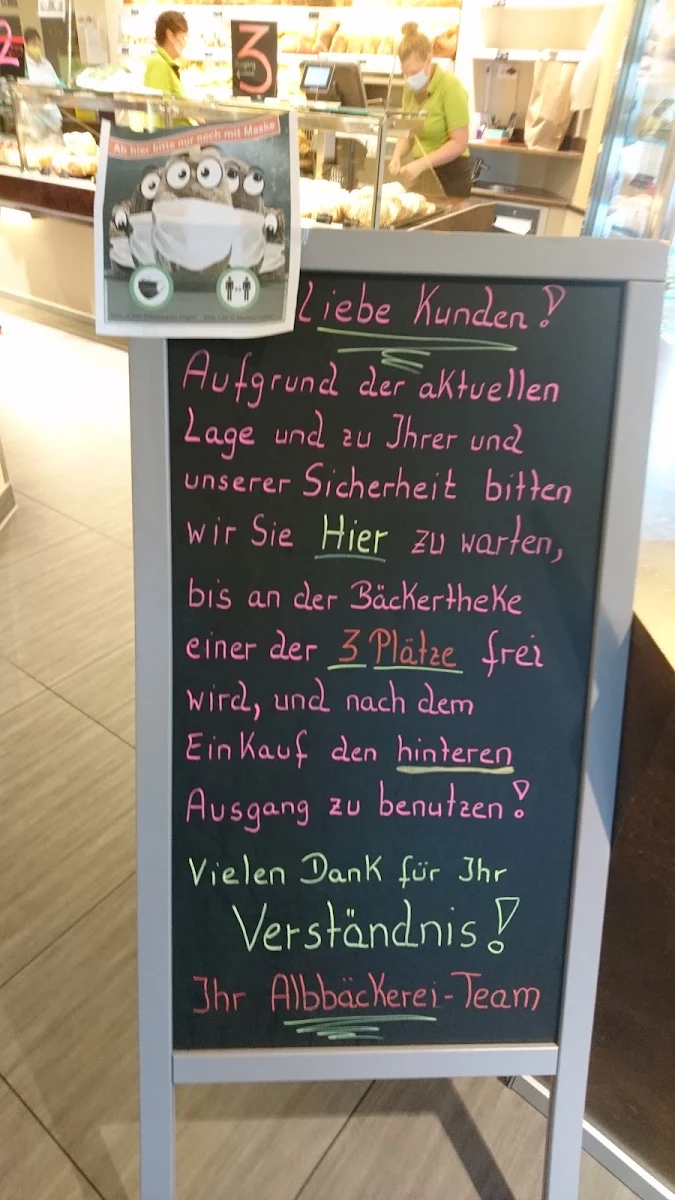 2
3
Ab hier bitte nur noch mit Maske
Liebe Kunden!
Aufgrund der aktuellen
Lage und zu Ihrer und
unserer Sicherheit bitten
wir Sie Hier zu warten,
bis an der Bäckertheke
einer der 3 Plätze frei
wird, und nach dem
Einkauf den hinteren
Ausgang zu benutzen!
Vielen Dank für Ihr
Verständnis!
Ihr Albbäckerei-Team